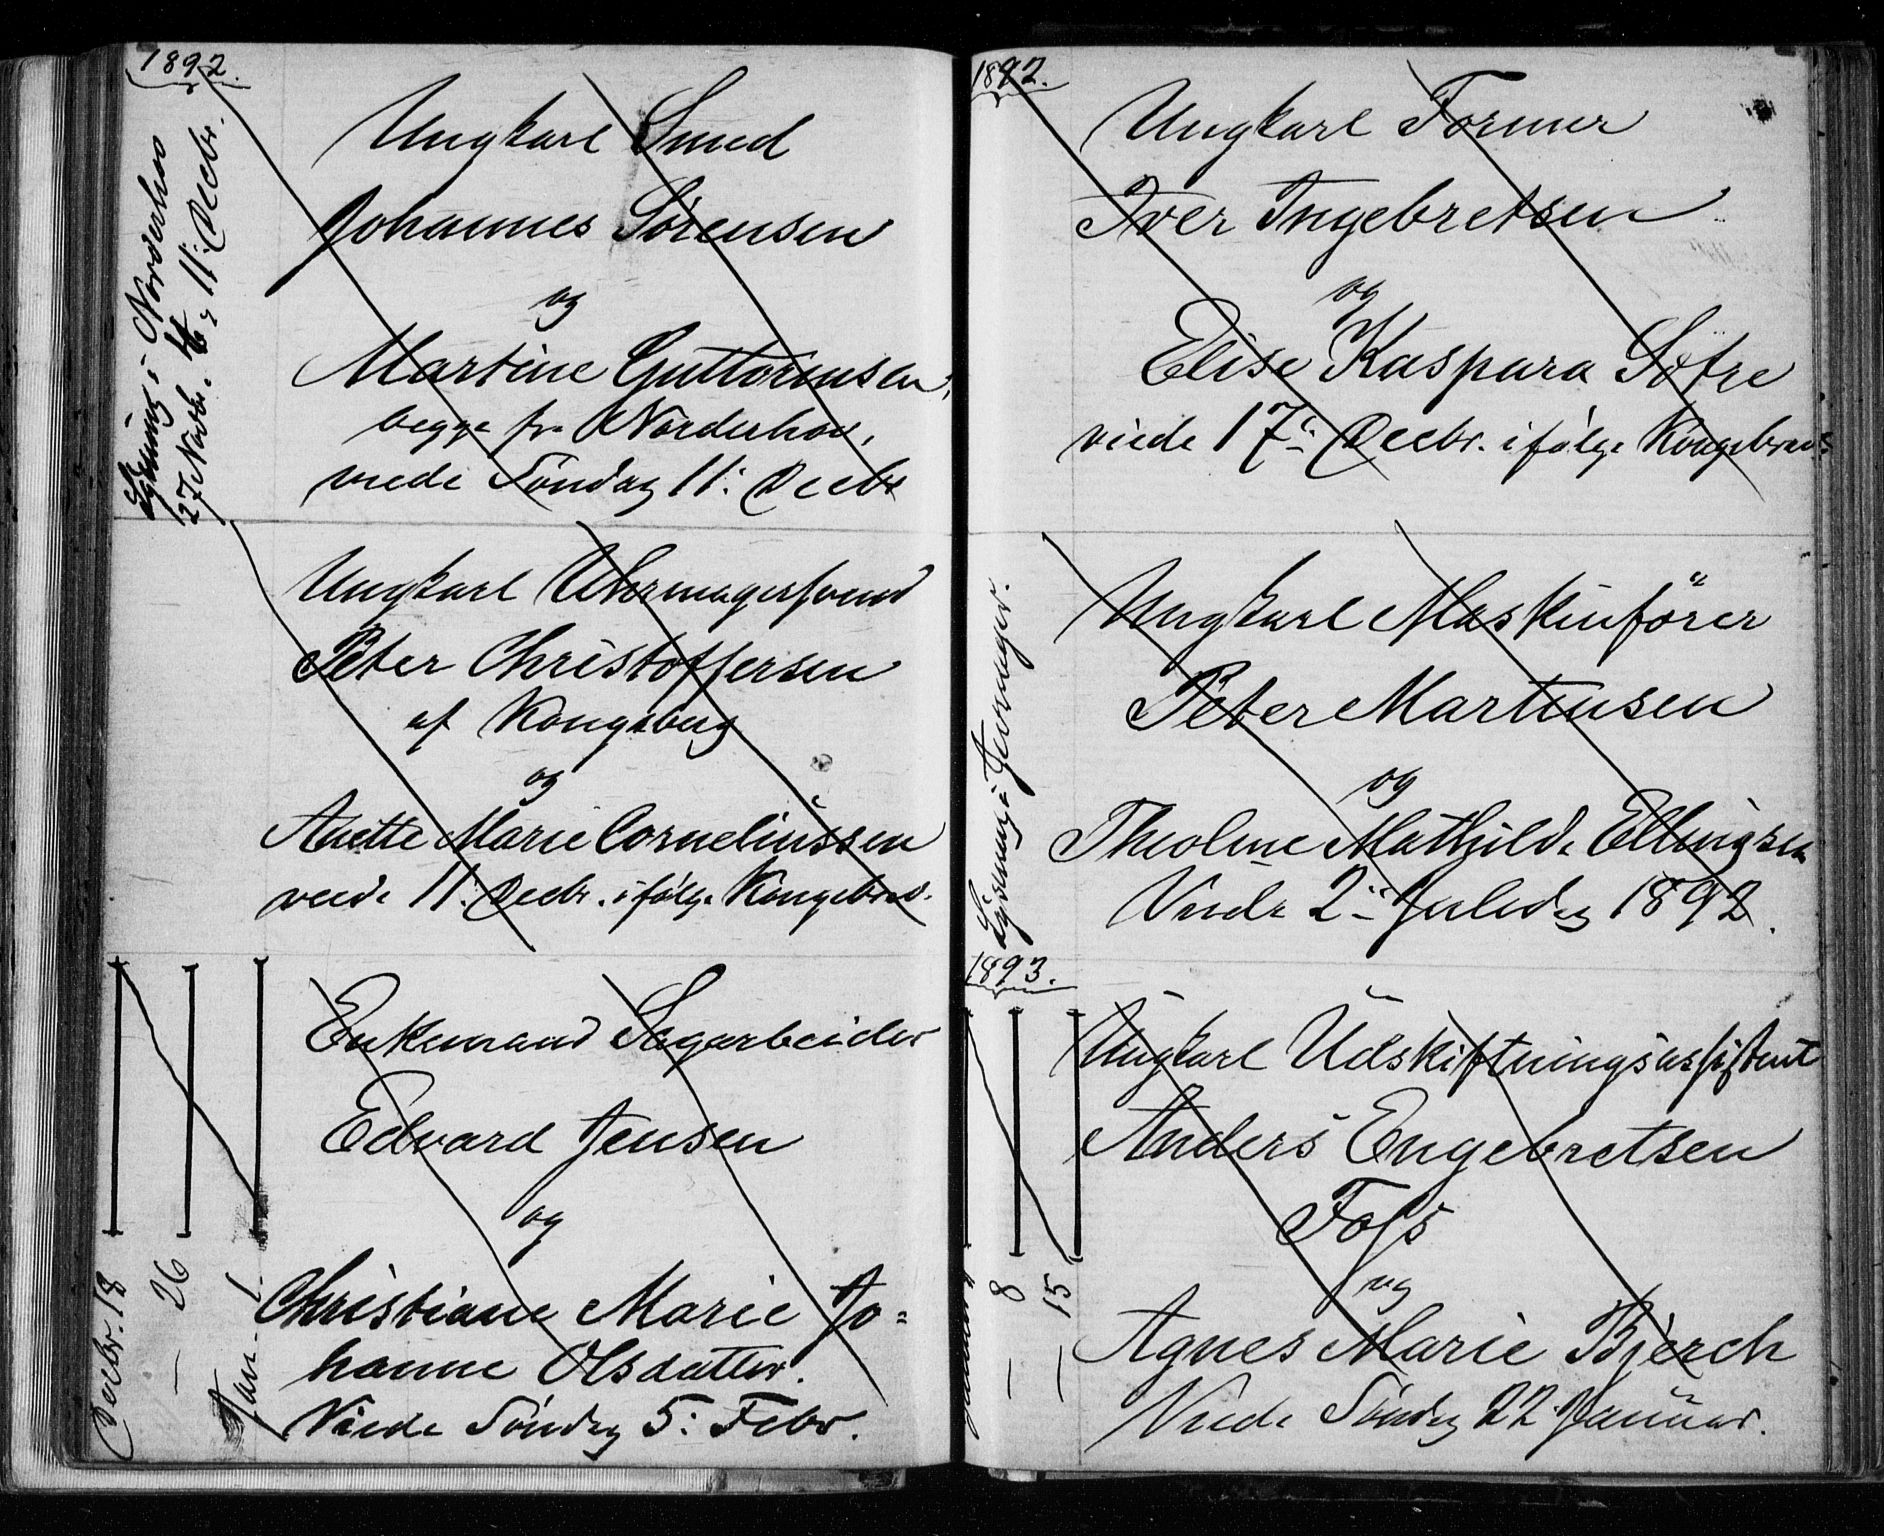 1892.
Lysning i Norderhov
27 Novbr. 4 & 11: Decbr.
Ungkarl Smed
Johannes Sørensen
og
Martine Guttormsen,
begge fr. Norderhov,
viede Søndag 11: Decbr
Ungkarl Uhrmagersvend
Peter Christoffersen
af Kongsberg
og
Anette Marie Corneliussen
viede 11: Decbr. ifølge Kongebrev.
Decbr. 18
— 26
Jan. 1.
Enkemand Sagarbeider
Edvard Jensen
og
Christiane Marie Jo=
hanne Olsdatter.
Viede Søndag 5: Febr.
1892.
Ungkarl Former
Iver Ingebretsen
og
Elise Kaspara Sotre
viede 17: Decbr. ifølge Kongebrev.
Lysning i
Ungkarl Maskinfører
Peter Martinsen
og
Theoline Mathilde Ellingsen
Viede 2: Juledag 1892.
1893.
Januar 1
— 8
— 15
Ungkarl Udskiftningsassistent
Anders Engebretsen
Foss
og
Agnes Marie Bjerch
Viede Søndag 22 Januar.